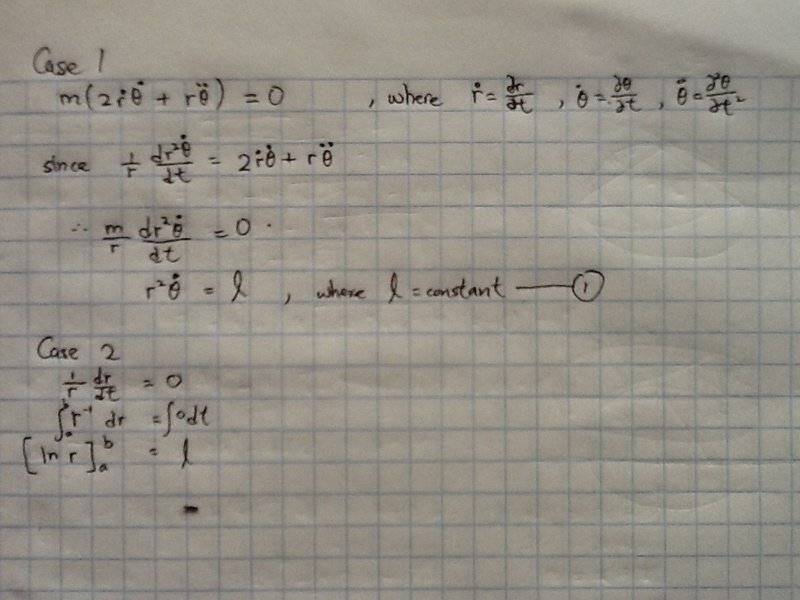 Case 1
m(2ṙθ̇ + rθ̈) = 0 , where ṙ = ∂r/∂t , θ̇ = ∂θ/∂t , θ̈ = ∂²θ/∂t²
since 1/r dr²θ̇/dt = 2ṙθ̇ + rθ̈
∴ m/r dr²θ̇/dt = 0 .
r²θ̇ = l , where l = constant — ①
Case 2
1/r dr/dt = 0
∫ₐᵇ r⁻¹ dr = ∫0dt
[ln r]ₐᵇ = l